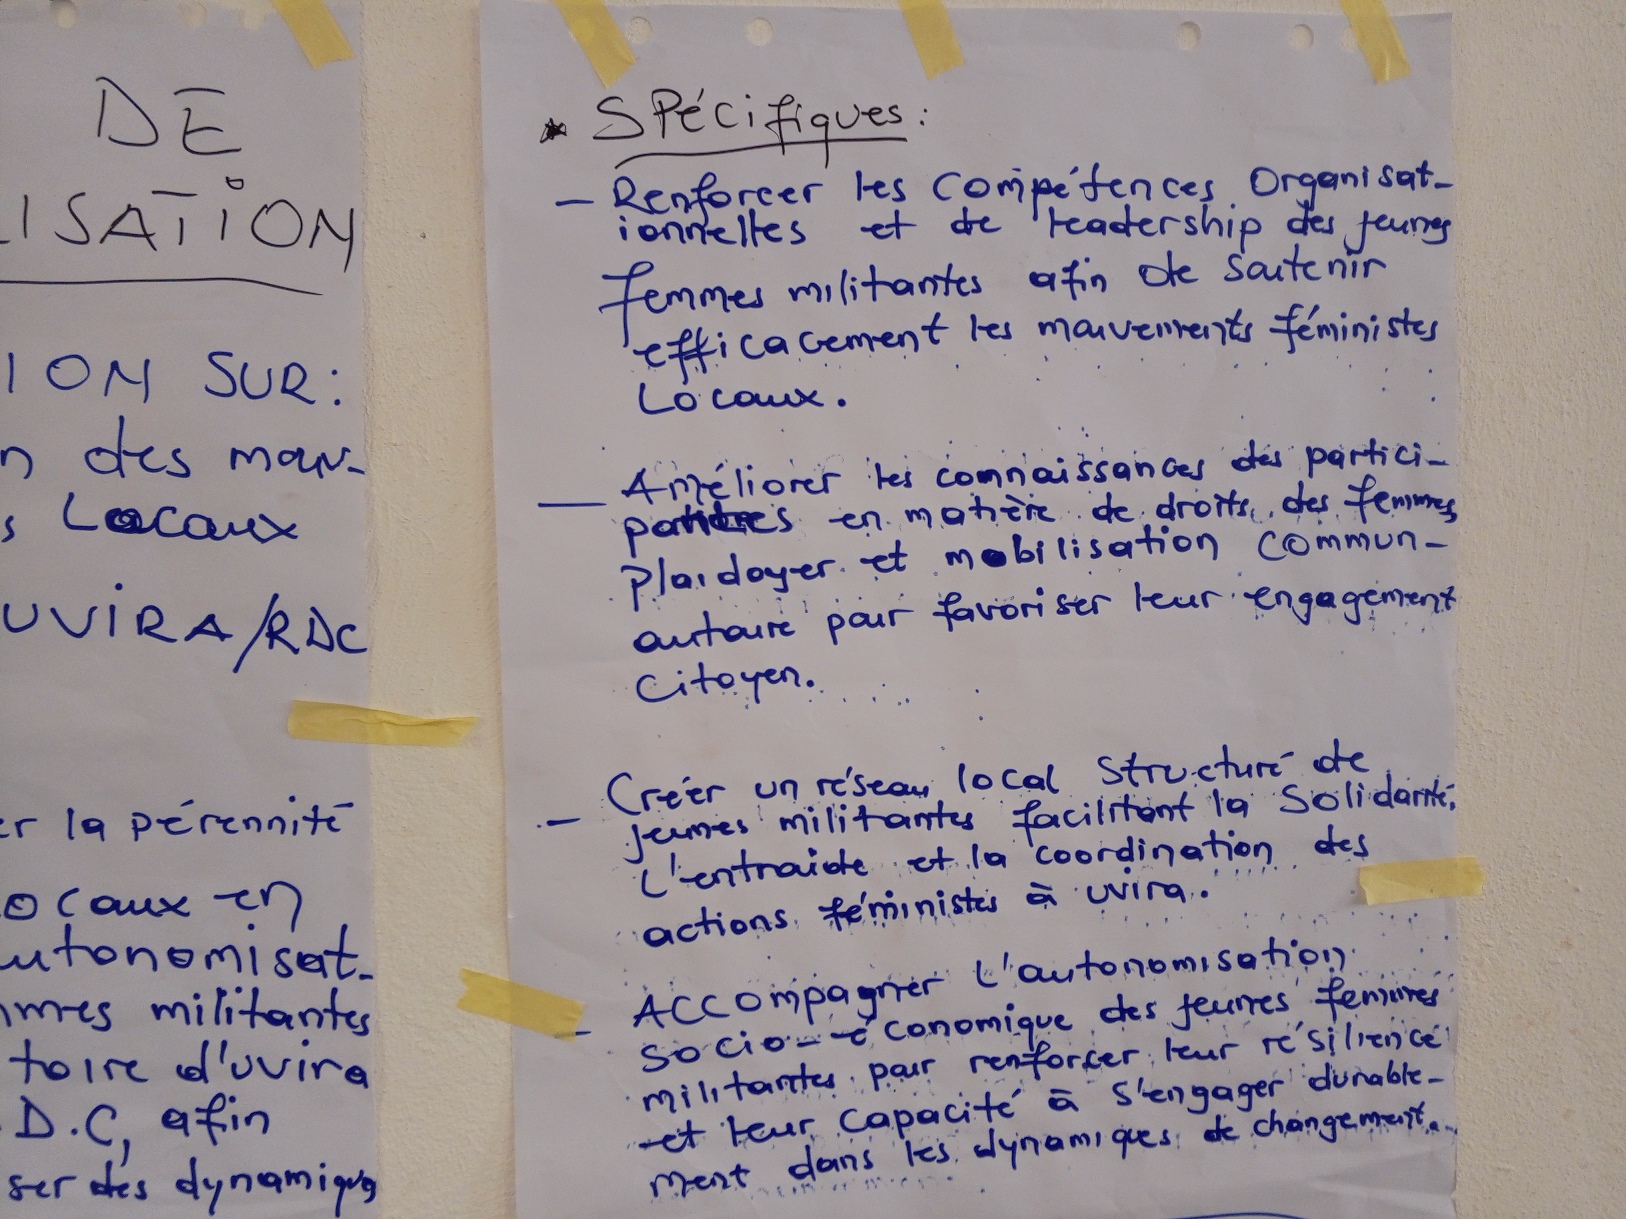 DE
LISATION
ION SUR:
n des mou-
s Locaux
UVIRA/RDC
er la pérennité
ocaux en
utonomisat-
mmes militantes
toire d'uvira
D.C, afin
ser des dynamiques
* Spécifiques:
- Renforcer les compétences organisat-
ionnelles et de leadership des jeunes
femmes militantes afin de soutenir
efficacement les mouvements féministes
Locaux.
- Améliorer les connaissances des partici-
pantes en matière de droits des femmes,
plaidoyer et mobilisation commun-
autaire pour favoriser leur engagement
citoyen.
- Créer un réseau local structuré de
jeunes militantes facilitant la solidarité,
l'entraide et la coordination des
actions féministes à uvira.
- Accompagner l'autonomisation
socio-économique des jeunes femmes
militantes pour renforcer leur résilience
et leur capacité à s'engager durable-
ment dans les dynamiques de changement.